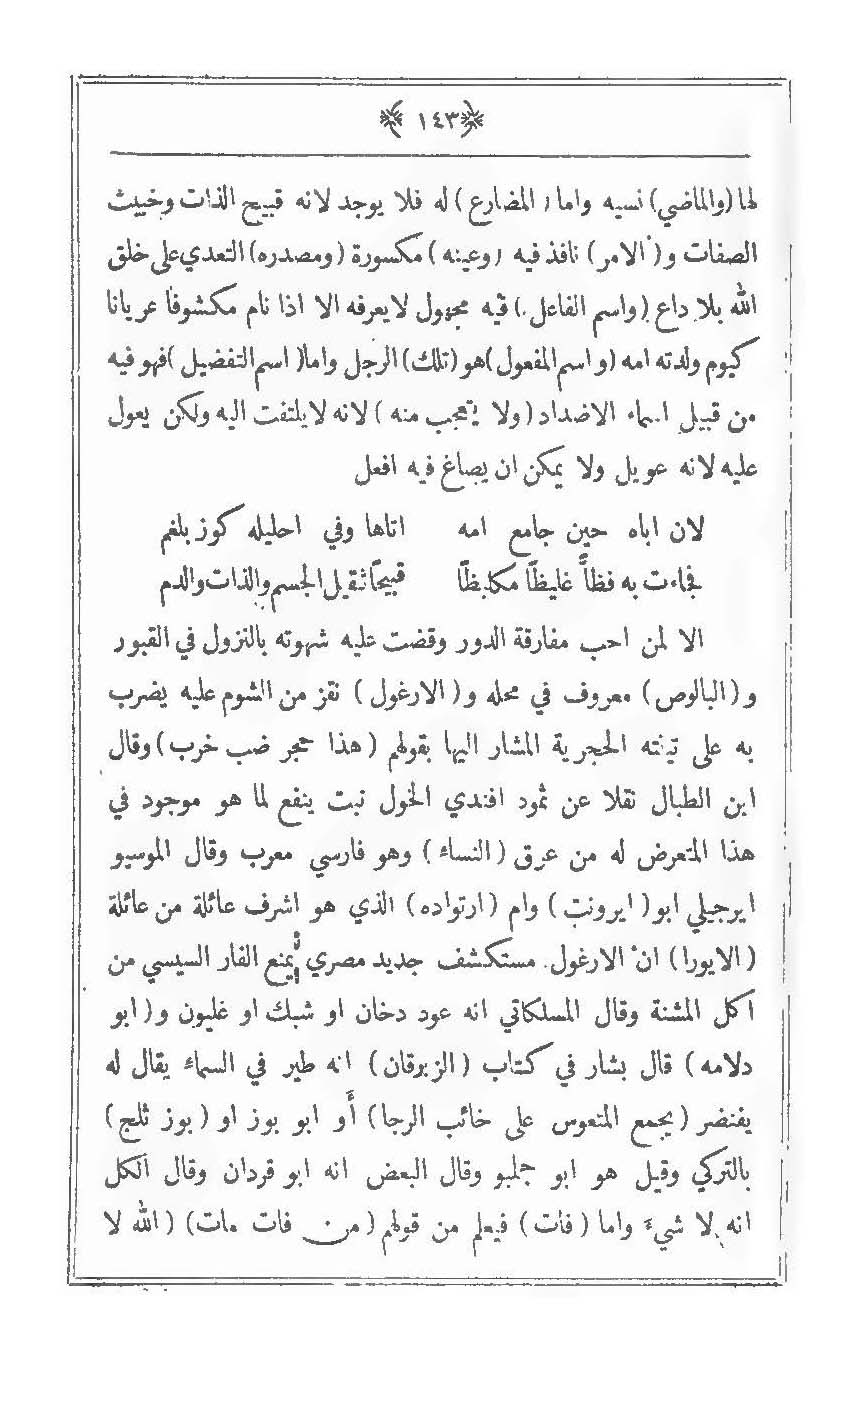 ١٤٣
لها (والماضي) نسيه واما (المضارع) له فلا يوجد لانه قبيح الذات وخبيث
الصفات و(الامر) نافذ فيه (وعينه) مكسورة (ومصدره) التعدي على خلق
الله بلا داع (واسم الفاعل) فيه مجهول لا يعرفه الا اذا نام مكشوفا عريانا
كيوم ولدته امه (واسم المفعول) هو (تلك) الرجل واما (اسم التفضيل) فهو فيه
من قبيل اسماء الاضداد (ولا يتعجب منه) لانه لا يلتفت اليه ولكن يعول
عليه لانه عويل ولا يمكن ان يصاغ فيه افعل
لان اباه حين جامع امه اتاها وفي احليله كوز بلغم
فجاءت به فظاً غليظاً مكلبظاً قبيحاً ثقيل الجسم والذات والدم
الا لمن احب مفارقة الدور وقضت عليه شهوته بالنزول في القبور
و(البالوص) معروف في محله و(الارغول) نقز من الشوم عليه يضرب
به على تيتته الحجرية المشار اليها بقولهم (هذا حجر ضب خرب) وقال
ابن الطبال نقلا عن ثمود افندي الخول نبت ينفع لما هو موجود في
هذا المتعرض له من عرق (النساء) وهو فارسي معرب وقال الموسيو
ايرجيلي ابو (ايرونت) وام (ارتواده) الذي هو اشرف عائلة من عائلة
(الايورا) ان الارغول مستكشف جديد مصري يمنع الفار السيسي من
اكل المشنة وقال المسلكاتي انه عود دخان او شبك او غليون و(ابو
دلامه) قال بشار في كتاب (الزبرقان) انه طير في السماء يقال له
يفنضر (يجمع المتعوس على خائب الرجا) أو ابو بوز او (بوز ثلج)
بالتركي وقيل هو ابو جملبو وقال البعض انه ابو قردان وقال الكل
انه لا شيء واما (فات) فيعلم من قولهم (من فات مات) (الله لا